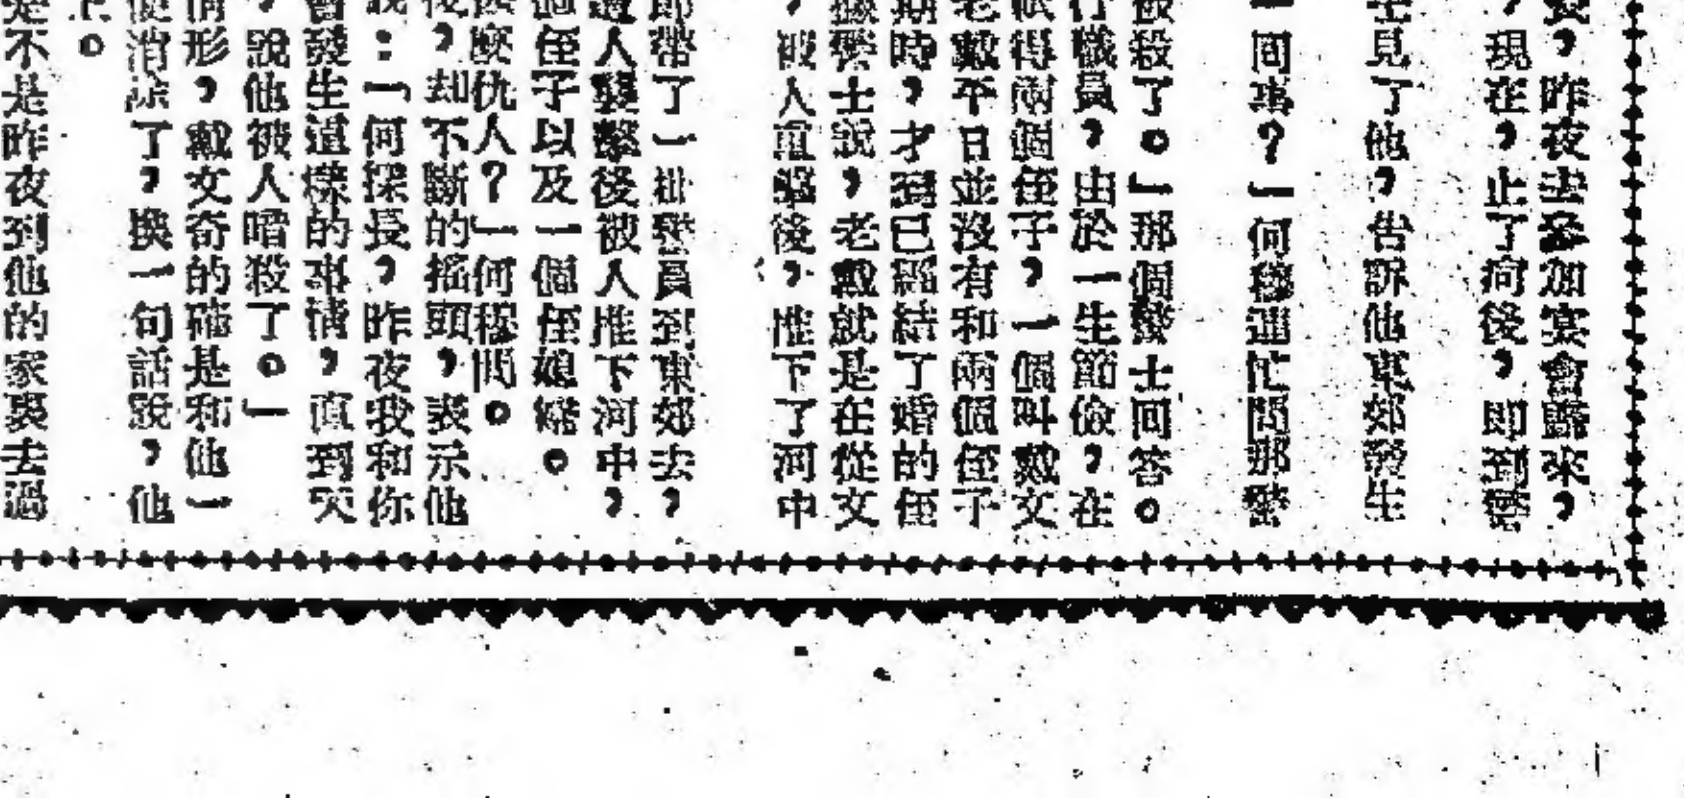 ，昨夜去參加宴會歸來，
，現在，止了何後，即到
士見了他，告訴他東郊發生
一回事？」何穆連忙問那警
被殺了。」那個警士回答。
行職員，由於一生節儉，在
祇得兩個侄子，一個叫戴文
老戴平日並沒有和兩個侄子
期時，才到已經結了婚的侄
據警士說，老戴就是在從文
，被人重擊後，推下了河中
即帶了一批警員到東郊去，
遭人襲擊後被人推下河中，
個侄子以及一個侄媳婦。
麼仇人？」何穆問。
後，却不斷的搖頭，表示他
我：「何探長，昨夜我和你
會發生這樣的事情，直到天
，說他被人暗殺了。」
情形，戴文奇的確是和他一
便消除了，換一句話說，他
上。
是不是昨夜到他的家裏去過